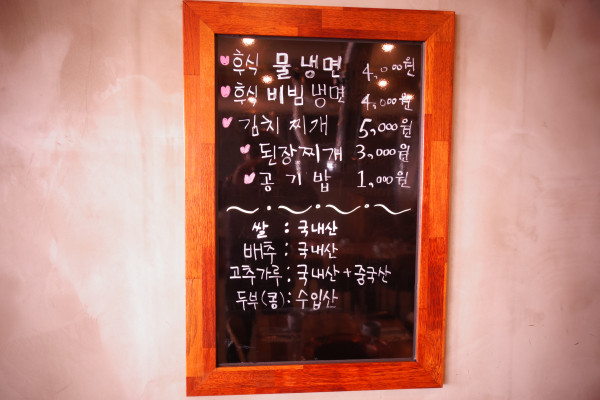 후식 물냉면 4,000원
후식 비빔냉면 4,000원
김치찌개 5,000원
된장찌개 3,000원
공기밥 1,000원
쌀 : 국내산
배추 : 국내산
고추가루 : 국내산+중국산
두부(콩) : 수입산